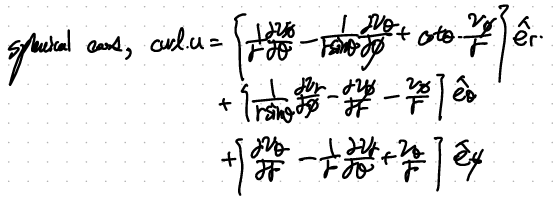 spherical coords, curl.u = [1/r ∂vφ/∂θ − 1/(r sinθ) ∂vθ/∂φ + cotθ · vφ/r] êr.
+ [1/(r sinθ) ∂vr/∂φ − ∂vφ/∂r − vφ/r] êθ
+ [∂vθ/∂r − 1/r ∂vr/∂θ + vθ/r] êφ